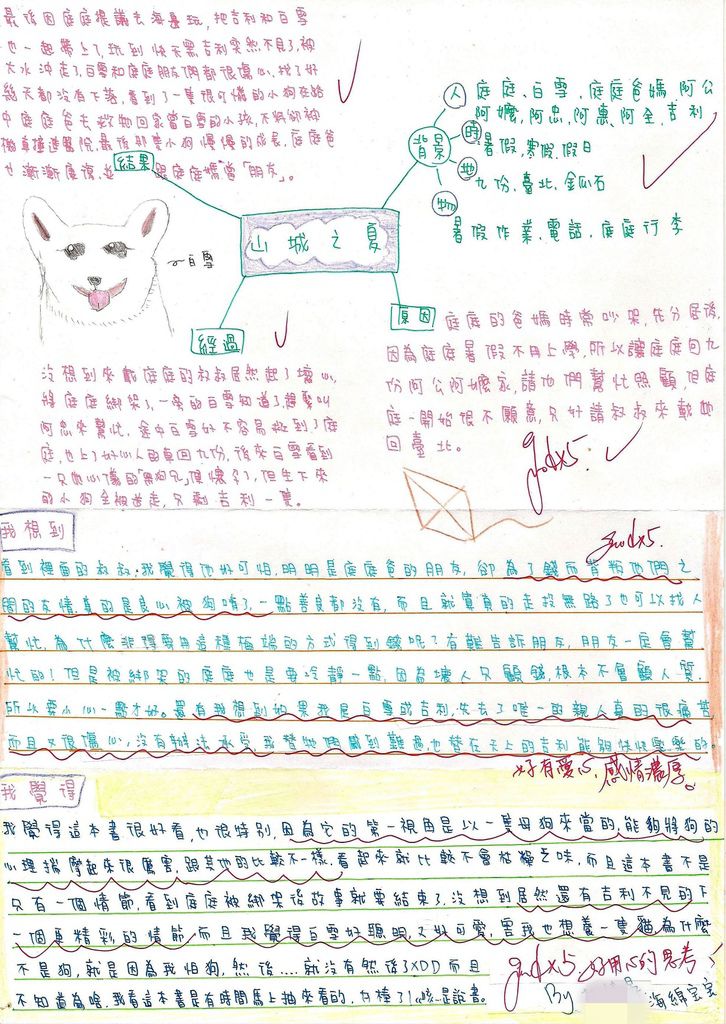 最後因庭庭提議去海邊玩，把吉利和白雪
也一起帶上了，玩到快天黑吉利突然不見了，被
大水沖走了，白雪和庭庭朋友們都很傷心，找了好
幾天都沒有下落，看到了一隻很可憐的小狗在路
中庭庭爸去救牠回家當白雪的小孩，不料卻被
機車撞進醫院，最後那隻小狗慢慢的成長，庭庭爸
也漸漸康復，並 跟庭庭媽當「朋友」。
結果
人 庭庭、白雪、庭庭爸媽、阿公
阿嬤、阿忠、阿惠、阿全、吉利
背景
時 暑假、寒假、假日
地 九份、臺北、金瓜石
物
暑假作業、電話、庭庭行李
山城之夏
白雪
經過
沒想到來載庭庭的叔叔居然起了壞心，
將庭庭綁架了，一旁的白雪知道了，想要叫
阿忠來幫忙，途中白雪好不容易找到了庭
庭，也上了好心人的車回九份，後來白雪看到
一隻
的小狗全被送走，只剩吉利一隻。
原因
庭庭的爸媽時常吵架，先分居後，
因為庭庭暑假不用上學，所以讓庭庭回九
份阿公阿嬤家，請他們幫忙照顧，但庭
庭一開始很不願意，只好請叔叔來載她
回臺北。
goodx5.
我想到
goodx5.
看到裡面的叔叔，我覺得他好可怕，明明是庭庭爸的朋友，卻為了錢而背叛他們之
間的友情，真的是良心被狗啃了，一點善良都沒有，而且就算真的走投無路了也可以找人
幫忙，為什麼非得要用這種極端的方式得到錢呢？有難告訴朋友，朋友一定會幫
忙的！但是被綁架的庭庭也是要冷靜一點，因為壞人只顧錢，根本不會顧人質，
所以要小心一點才好。還有我想到如果我是白雪或吉利，失去了唯一的親人真的很痛苦
而且又很傷心，沒有辦法承受，我替牠們感到難過，也替在天上的吉利能夠快快樂樂的。
好有愛心，感情濃厚。
我覺得
我覺得這本書很好看，也很特別，因為它的第一視角是以一隻母狗來當的，能夠將狗的
心理揣摩起來很厲害，跟其他的比較不一樣，看起來就比較不會枯燥乏味，而且這本書不是
只有一個情節，看到庭庭被綁架後故事就要結束了，沒想到居然還有吉利不見的下
一個更精彩的情節，而且我覺得白雪好聰明，又好可愛，害我也想養一隻貓，為什麼
不是狗，就是因為我怕狗，然後....就沒有然後了XDD而且
不知道為啥，我看這本書是有時間馬上抽來看的，有棒了！《咳 是說書。
goodx5 好用心的思考
By 海綿寶宝